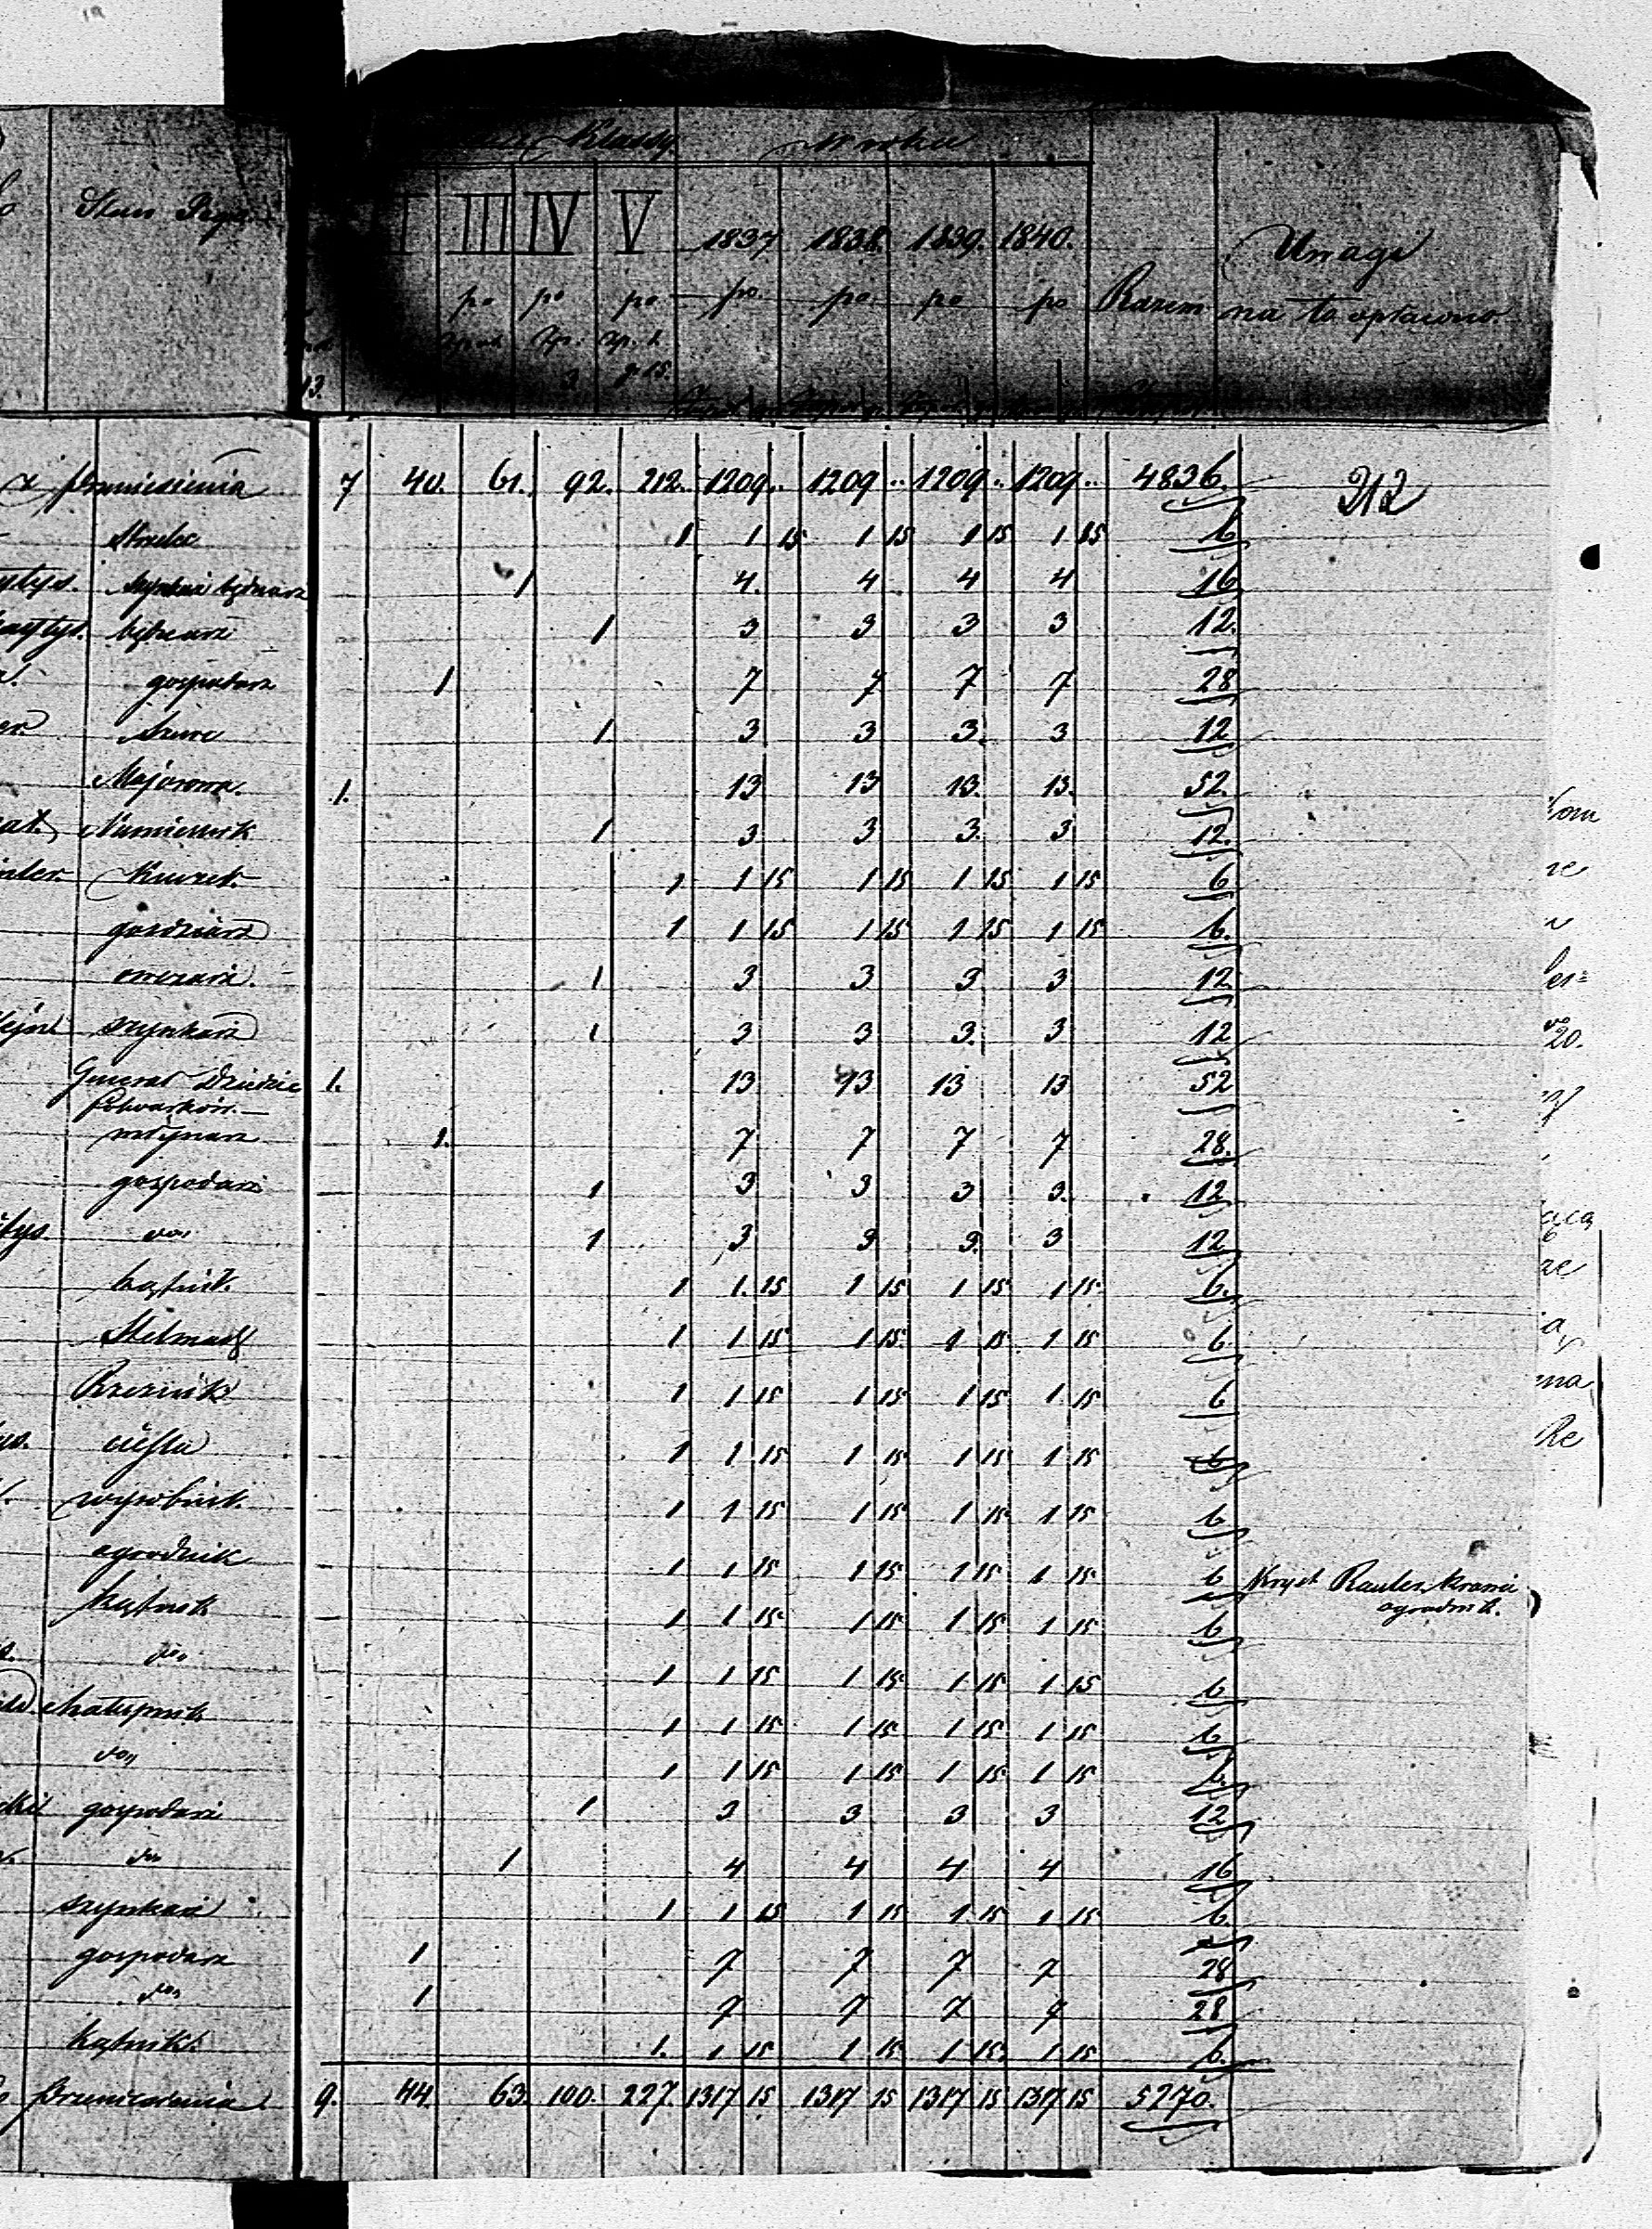 Klassy W roku
Stan
III IV V 1837 1838. 1839. 1840. Uwagi
po po po po. po. po po Razem na to opłacono
3 15.
13.
z przeniesienia 7 40. 61. 92. 212. 1209 .. 1209 .. 1209 .. 1209 .. 4836. 212
Strzelec 1 1 15 1 15 1 15 1 15 6
bednarz 1 4. 4 4 4 16
bednarz 1 3 3 3 3 12.
gospodarz 1 7 7 7 7 28
Szewc 1. 3 3 3. 3 12
Majorowa. 1. 13 13 13. 13. 52.
1 3 3 3. 3 12.
1 1 15 1 15 1 15 1 15 6
1 1 15 1 15 1 15 1 15 6.
owczarz. 1 3 3 3 3 12
szynkarz 1 3 3 3. 3 12
Generał Dziedzic 1. 13 13 13 13 52
folwarków.
młynarz 1. 7 7 7 7 28.
gospodarz 1 3 3 3 3. 12
do 1 3 3 3. 3 12
kątnik. 1 1. 15 1 15 1 15 1 15 6.
Stelmach 1 1 15 1 15. 1 15 1 15 6
Rzeznik 1 1 15 1 15 1 15 1 15 6
cieśla 1 1 15 1 15 1 15 1 15 6
wyrobnik. 1 1 15 1 15 1 15 1 15 6
ogrodnik 1 1 15 1 15 1 15 1 15 6 Kryst Rauter
ogrodnik.
kątnik 1 1 15 1 15 1 15 1 15 6
do 1 1 15 1 15 1 15 1 15 6
chałupnik 1 1 15 1 15 1 15 1 15 6
do 1 1 15 1 15 1 15 1 15 6
gospodarz 1 3 3 3 3 12
do 1 4 4 4 4 16
szynkarz 1 1 15 1 15 1 15 1 15 6
gospodarz 1 7 7 7 7 28
do 1 7 7 7 7 28
kątnik. 1. 1 15 1 15 1 15 1 15 6.
Do przeniesienia 9. 44. 63. 100. 227. 1317 15 1317 15 1317 15 1317 15 5270.